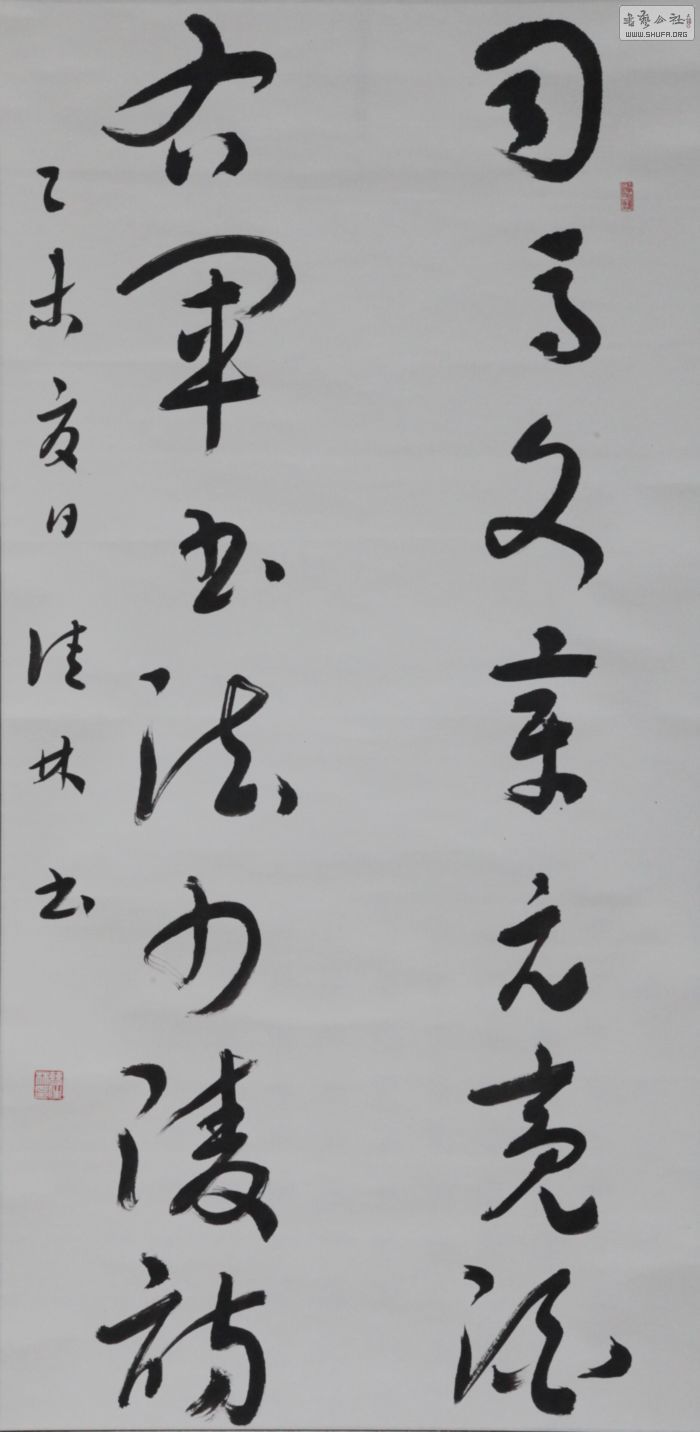 司马文章元亮酒
右军书法少陵诗
乙未夏日 佳林书
书艺公社
WWW.SHUFA.ORG